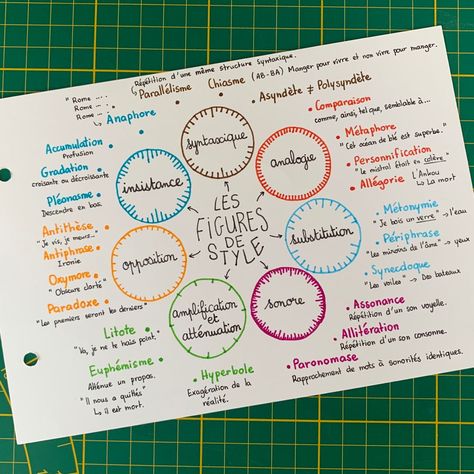 Répétition d'une même structure syntaxique.
Parallélisme
Chiasme (AB-BA) Manger pour vivre et non vivre pour manger.
Asyndète ≠ Polysyndète
"Rome ....
Rome ....
Rome ...."
Anaphore
Accumulation
Profusion
Gradation
croissante ou décroissante
Pléonasme
Descendre en bas.
insistance
syntaxique
analogie
Comparaison
comme, ainsi, tel que, semblable à...
Métaphore
"Cet océan de blé est superbe."
Personnification
"Le mistral était en colère."
Allégorie
L'Ankou
↳ La mort
LES
FIGURES
DE
STYLE
Antithèse
"Je vis, je meurs..."
Antiphrase
Ironie
Oxymore
"Obscure clarté"
Paradoxe
"Les premiers seront les derniers"
opposition
substitution
Métonymie
"Je bois un verre" → l'eau
Périphrase
"Les miroirs de l'âme" → yeux
Synecdoque
"Les voiles" → Des bateaux
amplification
et
atténuation
sonore
Assonance
Répétition d'un son voyelle.
Allitération
Répétition d'un son consonne.
Paronomase
Rapprochement de mots à sonorités identiques.
Litote
"Va, je ne te hais point."
Euphémisme
Atténue un propos.
"Il nous a quittés"
↳ il est mort.
Hyperbole
Exagération de la
réalité.